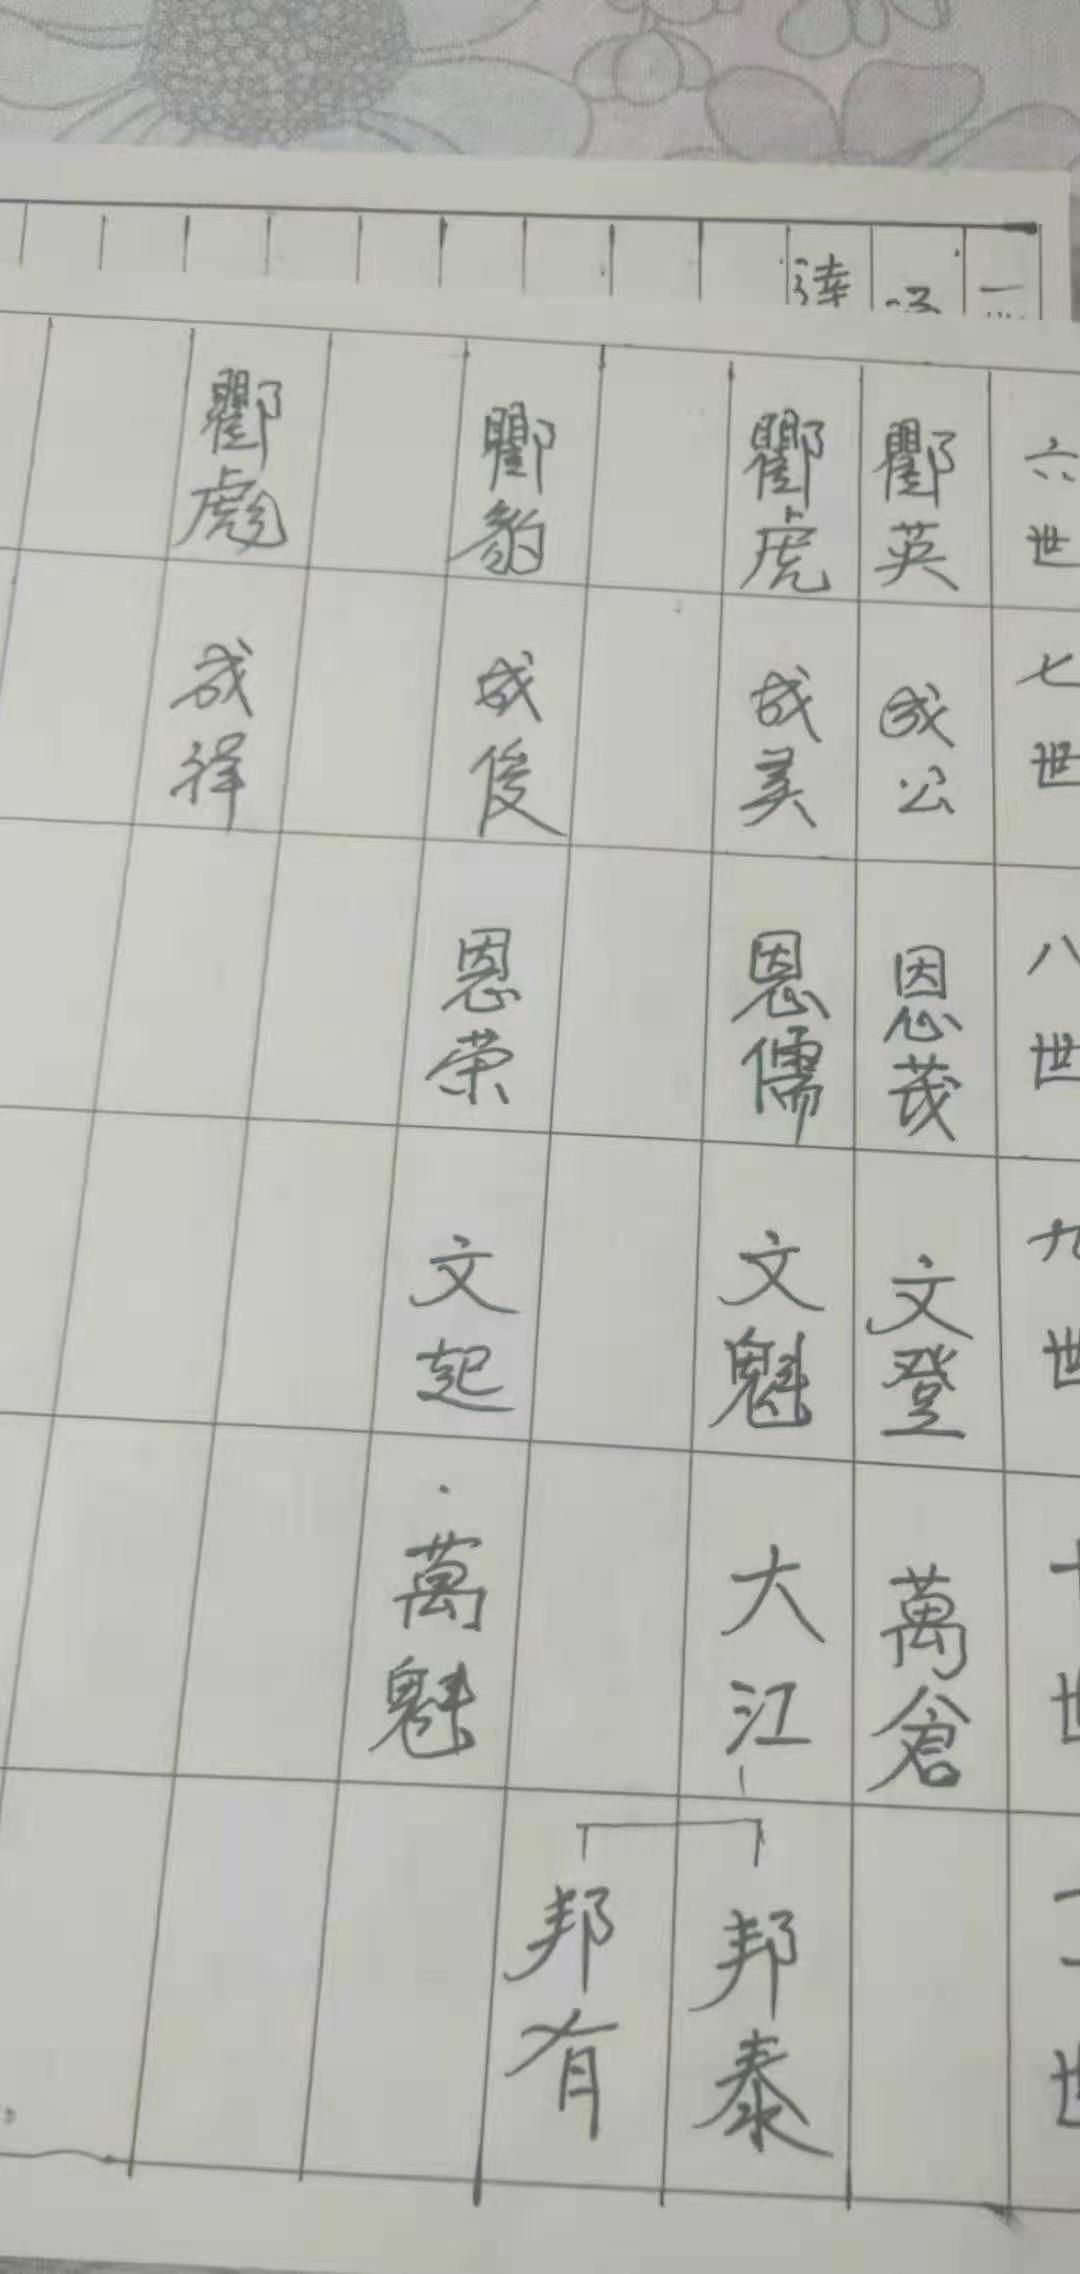 六世 七世 八世 九世 十世
英 成公 恩茂 文登 萬倉
虎 成美 恩儒 文魁 大江 邦泰
邦有
豹 成俊 恩荣 文起 萬魁
彪 成祥